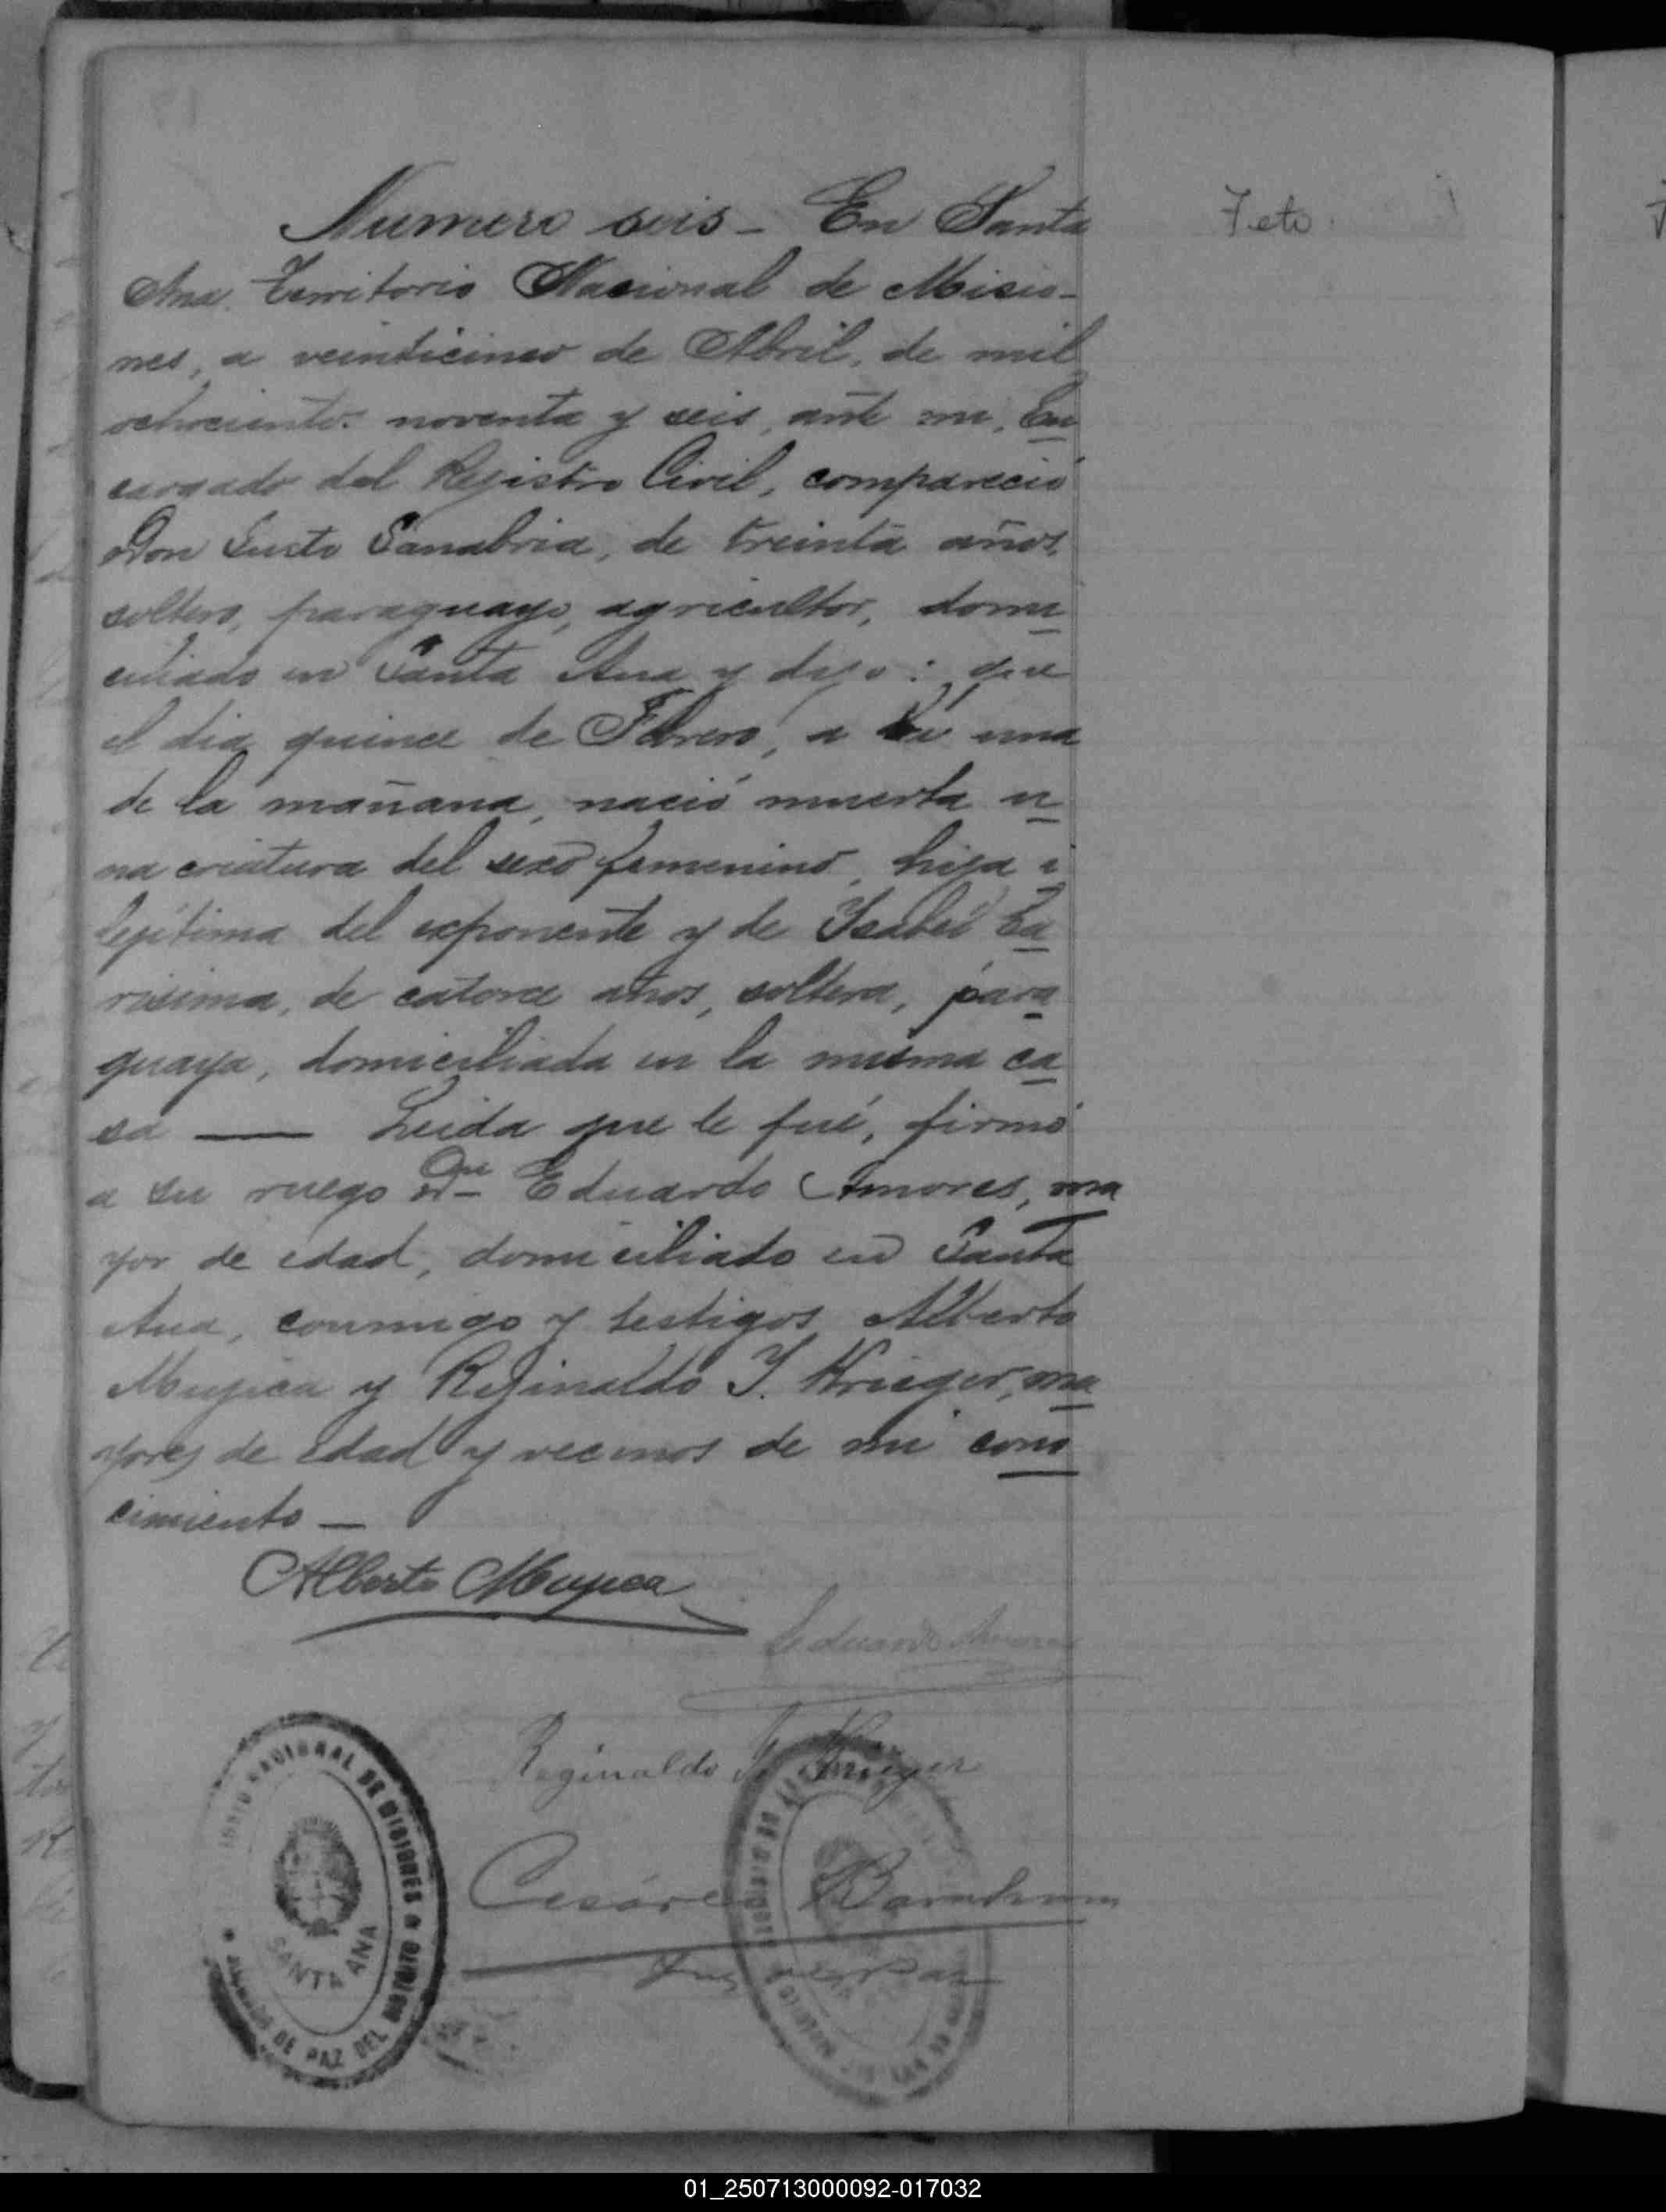 Numero seis - En Santa
Feto
Ana. Territorio Nacional de Misio-
nes, a veinticinco de Abril, de mil
ochocientos noventa y seis, ante mi, En
cargado del Rejistro Civil, compareció
Don Justo Sanabria, de treinta años,
soltero, paraguayo, agricultor, domi
ciliado en Santa Ana y dijo: que
el dia quince de Febrero, a la una
de la mañana, nació muerta u
na criatura del sexo femenino, hija i
lejítima del exponente y de Isabel
de catorce años, soltera, para
guaya, domiciliada en la misma ca
sa — Leida que le fué, firmó
a su ruego Dn Eduardo Amores, ma
yor de edad, domiciliado en Santa
Ana, conmigo y testigos Alberto
Mujica y Rejinaldo I. Krieger, ma
yores de edad y vecinos de mi cono
cimiento —
Alberto Mujica
Eduardo Amores
Reginaldo Krieger
Juez de Paz
NACIONAL DE MISIONES
SANTA ANA
JUZGADO DE PAZ DEL DISTRITO
01_250713000092-017032